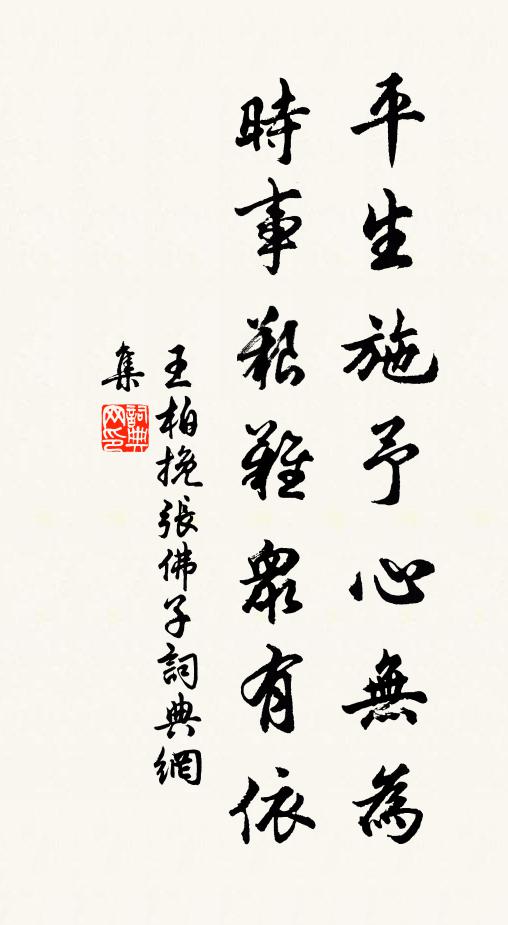 平生施予心無為
時事艱難眾有依
王柏挽張佛子詞典網
集
詞典網印